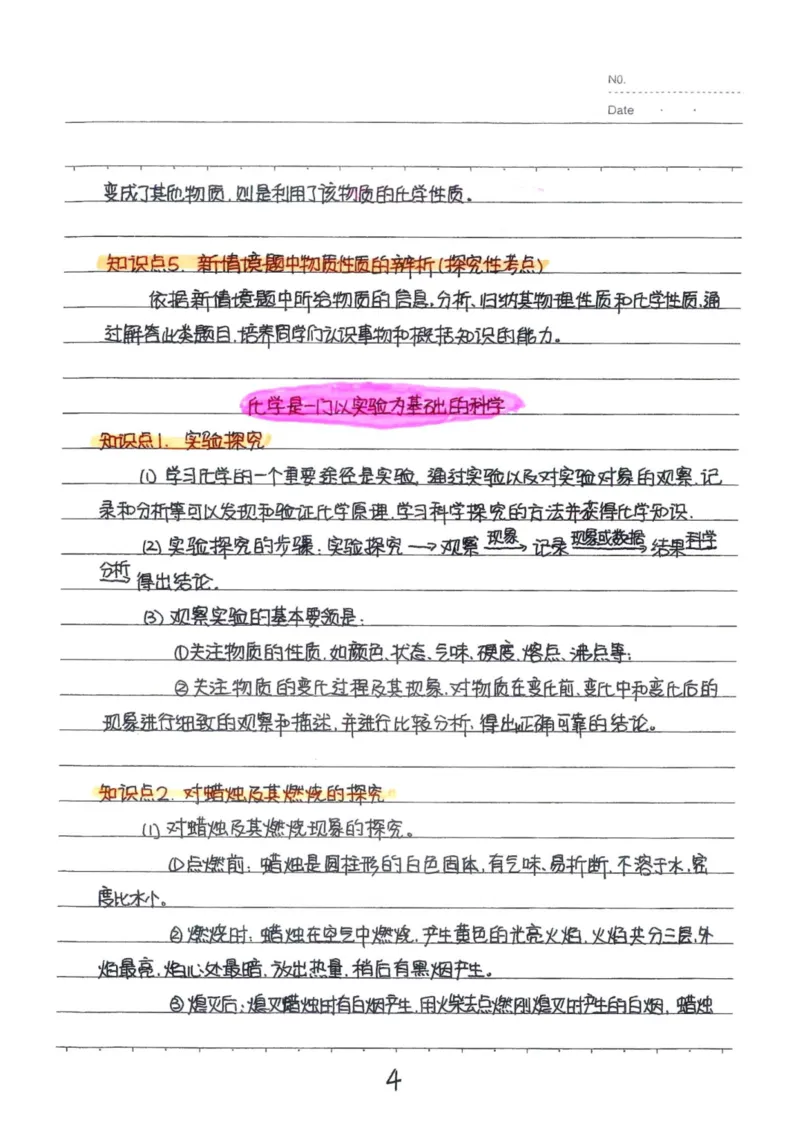 NO.
Date
变成了其他物质,则是利用了该物质的化学性质。
知识点5. 新情境题中物质性质的辨析(探究性考点)
依据新情境题中所给物质的信息,分析、归纳其物理性质和化学性质,通
过解答此类题目,培养同学们认识事物和概括知识的能力。
化学是一门以实验为基础的科学
知识点1. 实验探究
(1) 学习化学的一个重要途径是实验, 通过实验以及对实验对象的观察、记
录和分析等可以发现和验证化学原理,学习科学探究的方法并获得化学知识.
(2) 实验探究的步骤: 实验探究→观察 现象→ 记录 现象或数据→ 结果 科学
分析→ 得出结论.
(3) 观察实验的基本要领是:
①关注物质的性质,如颜色、状态、气味、硬度、熔点、沸点等;
②关注物质的变化过程及其现象,对物质在变化前、变化中和变化后的
现象进行细致的观察和描述,并进行比较分析,得出正确可靠的结论。
知识点2. 对蜡烛及其燃烧的探究
(1) 对蜡烛及其燃烧现象的探究。
①点燃前: 蜡烛是圆柱形的白色固体,有气味、易折断,不溶于水,密
度比水小。
②燃烧时: 蜡烛在空气中燃烧,产生黄色的光亮火焰,火焰共分三层,外
焰最亮,焰心处最暗,放出热量,稍后有黑烟产生。
③熄灭后: 熄灭蜡烛时有白烟产生,用火柴去点燃刚熄灭时产生的白烟, 蜡烛
4